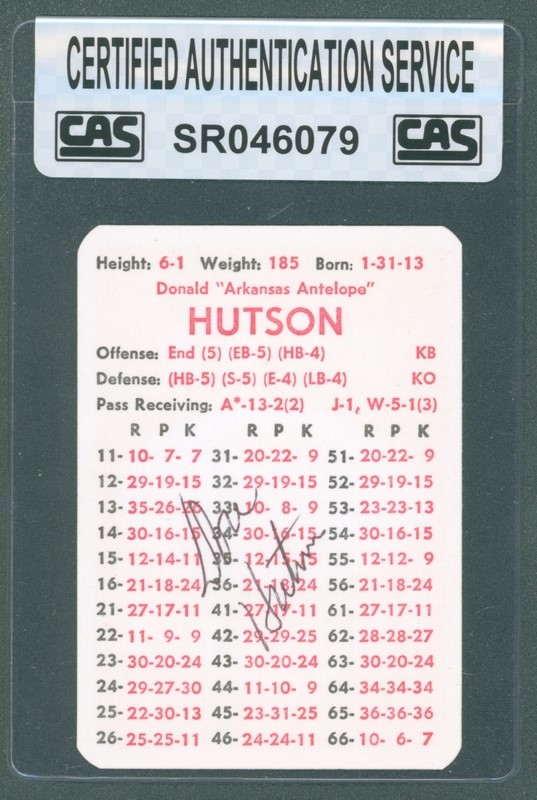 CERTIFIED AUTHENTICATION SERVICE
CAS SR046079 CAS
Height: 6-1 Weight: 185 Born: 1-31-13
Donald "Arkansas Antelope"
HUTSON
Offense: End (5) (EB-5) (HB-4) KB
Defense: (HB-5) (S-5) (E-4) (LB-4) KO
Pass Receiving: A*-13-2(2) J-1, W-5-1(3)
R P K R P K R P K
11- 10- 7- 7 31- 20-22- 9 51- 20-22- 9
12- 29-19-15 32- 29-19-15 52- 29-19-15
13- 35-26-26 33- 10- 8- 9 53- 23-23-13
14- 30-16-15 34- 30-16-15 54- 30-16-15
15- 12-14-11 35- 12-15-15 55- 12-12- 9
16- 21-18-24 36- 21-18-24 56- 21-18-24
21- 27-17-11 41- 27-17-11 61- 27-17-11
22- 11- 9- 9 42- 29-29-25 62- 28-28-27
23- 30-20-24 43- 30-20-24 63- 30-20-24
24- 29-27-30 44- 11-10- 9 64- 34-34-34
25- 22-30-13 45- 23-31-25 65- 36-36-36
26- 25-25-11 46- 24-24-11 66- 10- 6- 7
Don Hutson